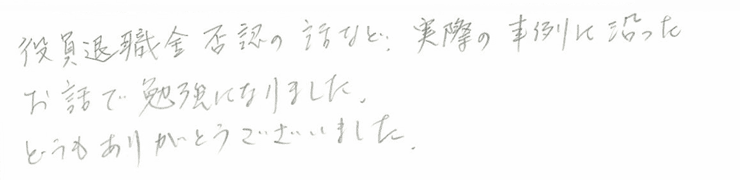 役員退職金否認の話など、実際の事例に沿った
お話で勉強になりました。
どうもありがとうございました。